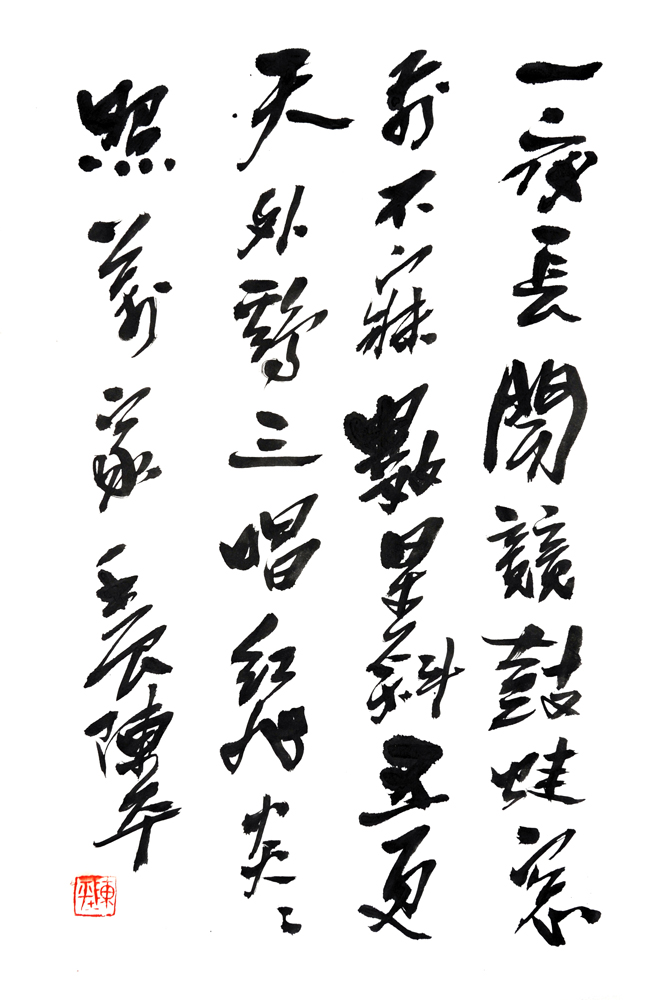 一夜長聞競鼓蛙窓
前不寐數星斜五更
天外鷄三唱紅旭炎〻
照萬家 壬辰陳平
陳平